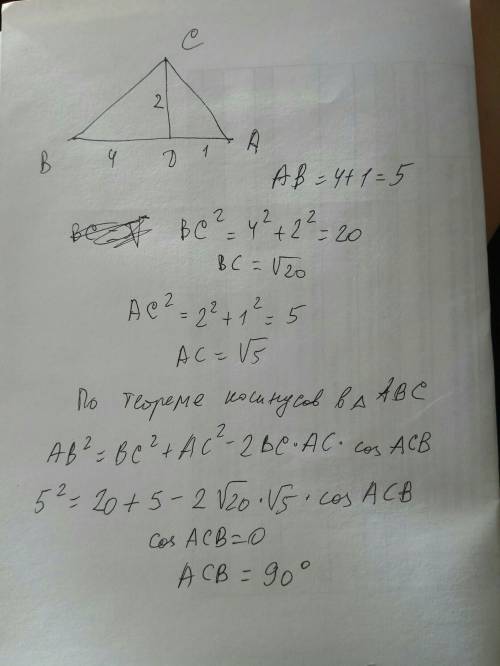 C
2
B 4 D 1 A
AB = 4+1 = 5
BC² = 4² + 2² = 20
BC = √20
AC² = 2² + 1² = 5
AC = √5
По теореме косинусов в △ ABC
AB² = BC² + AC² - 2BC·AC·cos ACB
5² = 20 + 5 - 2√20·√5·cos ACB
cos ACB = 0
ACB = 90°